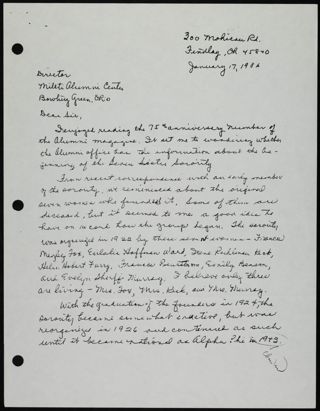 300 Mohican Rd.
Findlay, OH 45840
January 17, 1986
Director
Mileti Alumni Center
Bowling Green, Ohio
Dear Sir,
I enjoyed reading the 75th anniversary number of
the Alumni magazine. It set me to wondering whether
the Alumni office has the information about the be-
ginning of the Seven Sister Sorority.
From recent correspondence with an early member
of the sorority, we reminisced about the original
seven women who founded it. Some of them are
deceased, but it seemed to me a good idea to
have on record how the group began. The sorority
was organized in 1922 by these seven women - Frances
Fox, Eulalia Hoffman Ward, Irene Keck,
Helen Hobart Furry, Frances Emily Benson,
and Evelyn Murray. I believe only three
are living - Mrs. Fox, Mrs. Keck, and Mrs. Murray.
With the graduation of the founders in 1924, the
sorority became somewhat inactive, but was
reorganized in 1926 and continued as such
until it became national as Alpha Phi in 1943.